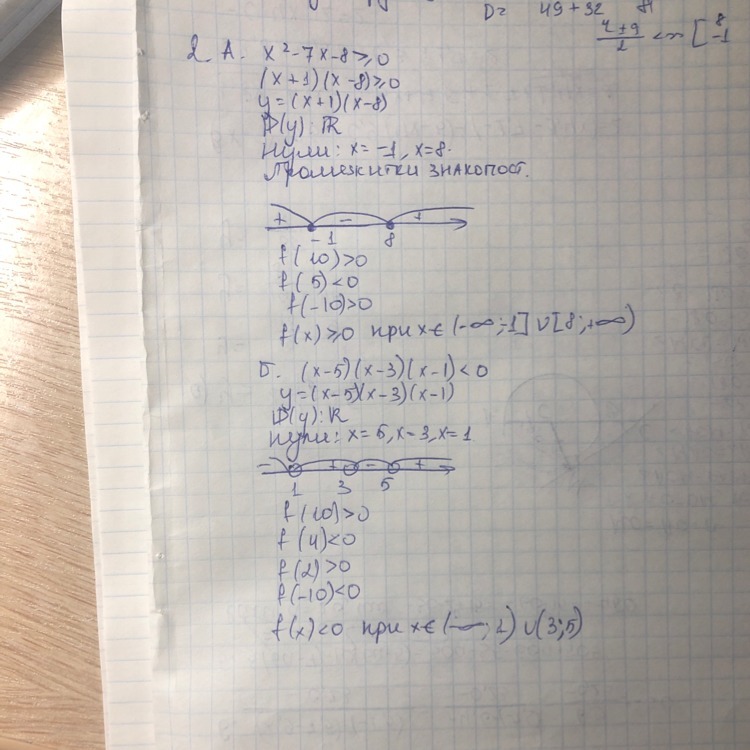 D= 49+32 81
7±9/2 <=> [8 -1
2. А. x²-7x-8⩾0
(x+1)(x-8)⩾0
y=(x+1)(x-8)
D(y): R
Нули: x=-1, x=8.
Промежитки знакопост.
+ - +
-1 8
f(10)>0
f(5)<0
f(-10)>0
f(x)⩾0 при x∈(-∞;-1]∪[8;+∞)
Б. (x-5)(x-3)(x-1)<0
y=(x-5)(x-3)(x-1)
D(y): R
Нули: x=5, x=3, x=1
- + - +
1 3 5
f(10)>0
f(4)<0
f(2)>0
f(-10)<0
f(x)<0 при x∈(-∞;1)∪(3;5)